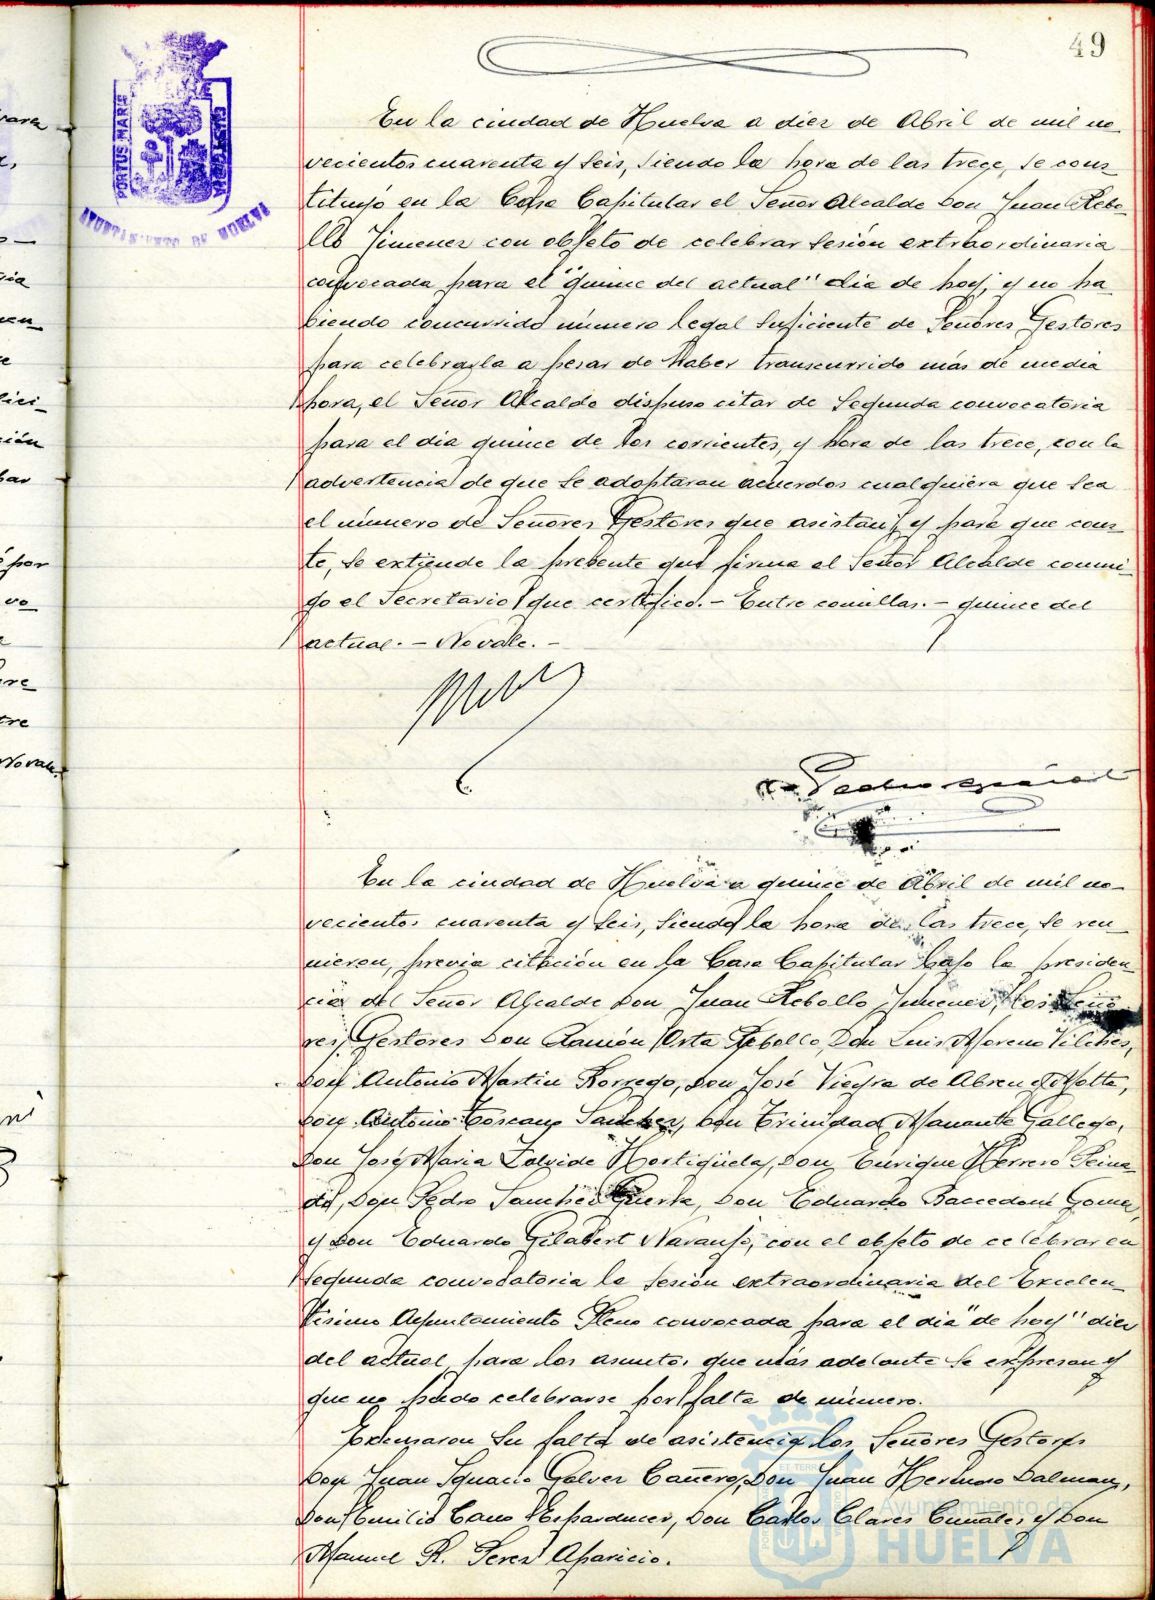 49
PORTUS MARIS
AYUNTAMIENTO DE HUELVA
En la ciudad de Huelva a diez de Abril de mil no-
vecientos cuarenta y seis, siendo la hora de las trece, se cons-
tituyó en la Casa Capitular el Señor Alcalde Don Juan Rebo-
llo Jimenez con objeto de celebrar sesión extraordinaria
convocada para el "quince del actual" dia de hoy, y no ha-
biendo concurrido número legal suficiente de Señores Gestores
para celebrarla a pesar de haber transcurrido más de media
hora, el Señor Alcalde dispuso citar de segunda convocatoria
para el dia quince de los corrientes, y hora de las trece, con la
advertencia de que se adoptaran acuerdos cualquiera que sea
el número de Señores Gestores que asistan; y para que cons-
te, se extiende la presente que firma el Señor Alcalde conmi-
go el Secretario que certifico.- Entre comillas.- quince del
actual.- No vale.-
En la ciudad de Huelva a quince de Abril de mil no-
vecientos cuarenta y seis, siendo la hora de las trece, se reu-
nieron, previa citación en la Casa Capitular bajo la presiden-
cia del Señor Alcalde Don Juan Rebollo Jimenez, los Seño-
res Gestores Don Ramón Orta Rebollo, Don Luis Moreno Vilches,
Don Antonio Martin Borrego, Don José Vieyra de Abreu y Motta,
Don Antonio Toscano Sanchez, Don Trinidad Gallego,
Don José Maria Zalvide Hortigüela, Don Enrique Herrero Peina-
do, Don Pedro Sanchez Guerra, Don Eduardo Gomez,
y Don Eduardo Gilabert Naranjo, con el objeto de celebrar en
segunda convocatoria la sesión extraordinaria del Excelen-
tísimo Ayuntamiento Pleno convocada para el dia "de hoy" diez
del actual, para los asuntos que más adelante se expresan y
que no pudo celebrarse por falta de número.
Excusaron su falta de asistencia los Señores Gestores
Don Juan Ignacio Galvez Cañero, Don Juan Hermoso Dalmau,
Don Emilio Cano Don Carlos Clares y Don
Manuel R. Perez Aparicio.
Ayuntamiento de
HUELVA